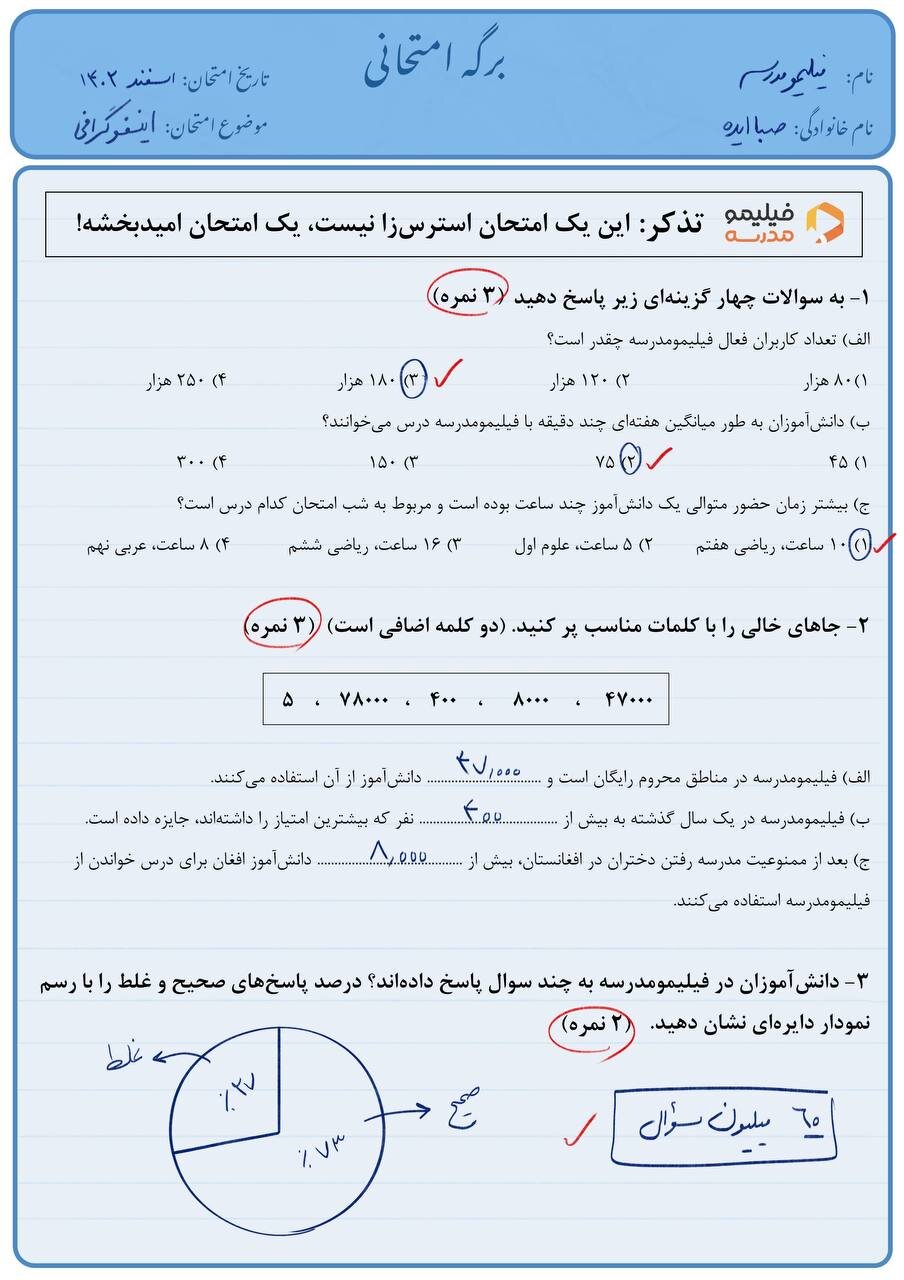 برگه امتحانی
نام: فیلیمومدرسه
تاریخ امتحان: اسفند ۱۴۰۲
نام خانوادگی: صبا ایده
موضوع امتحان: اینفوگرافی
فیلیمو مدرسه
تذکر: این یک امتحان استرس‌زا نیست، یک امتحان امیدبخشه!
۱- به سوالات چهار گزینه‌ای زیر پاسخ دهید (۳ نمره)
الف) تعداد کاربران فعال فیلیمومدرسه چقدر است؟
۱) ۸۰ هزار ۲) ۱۲۰ هزار ۳) ۱۸۰ هزار ۴) ۲۵۰ هزار
ب) دانش‌آموزان به طور میانگین هفته‌ای چند دقیقه با فیلیمومدرسه درس می‌خوانند؟
۱) ۴۵ ۲) ۷۵ ۳) ۱۵۰ ۴) ۳۰۰
ج) بیشتر زمان حضور متوالی یک دانش‌آموز چند ساعت بوده است و مربوط به شب امتحان کدام درس است؟
۱) ۱۰ ساعت، ریاضی هفتم ۲) ۵ ساعت، علوم اول ۳) ۱۶ ساعت، ریاضی ششم ۴) ۸ ساعت، عربی نهم
۲- جاهای خالی را با کلمات مناسب پر کنید. (دو کلمه اضافی است) (۳ نمره)
۴۷۰۰۰ ، ۸۰۰۰ ، ۴۰۰ ، ۷۸۰۰۰ ، ۵
الف) فیلیمومدرسه در مناطق محروم رایگان است و ۴۷,۰۰۰ دانش‌آموز از آن استفاده می‌کنند.
ب) فیلیمومدرسه در یک سال گذشته به بیش از ۴۰۰ نفر که بیشترین امتیاز را داشته‌اند، جایزه داده است.
ج) بعد از ممنوعیت مدرسه رفتن دختران در افغانستان، بیش از ۸,۰۰۰ دانش‌آموز افغان برای درس خواندن از
فیلیمومدرسه استفاده می‌کنند.
۳- دانش‌آموزان در فیلیمومدرسه به چند سوال پاسخ داده‌اند؟ درصد پاسخ‌های صحیح و غلط را با رسم
نمودار دایره‌ای نشان دهید. (۲ نمره)
۶۰ میلیون سؤال
صحیح
غلط
٪۲۷
٪۷۳